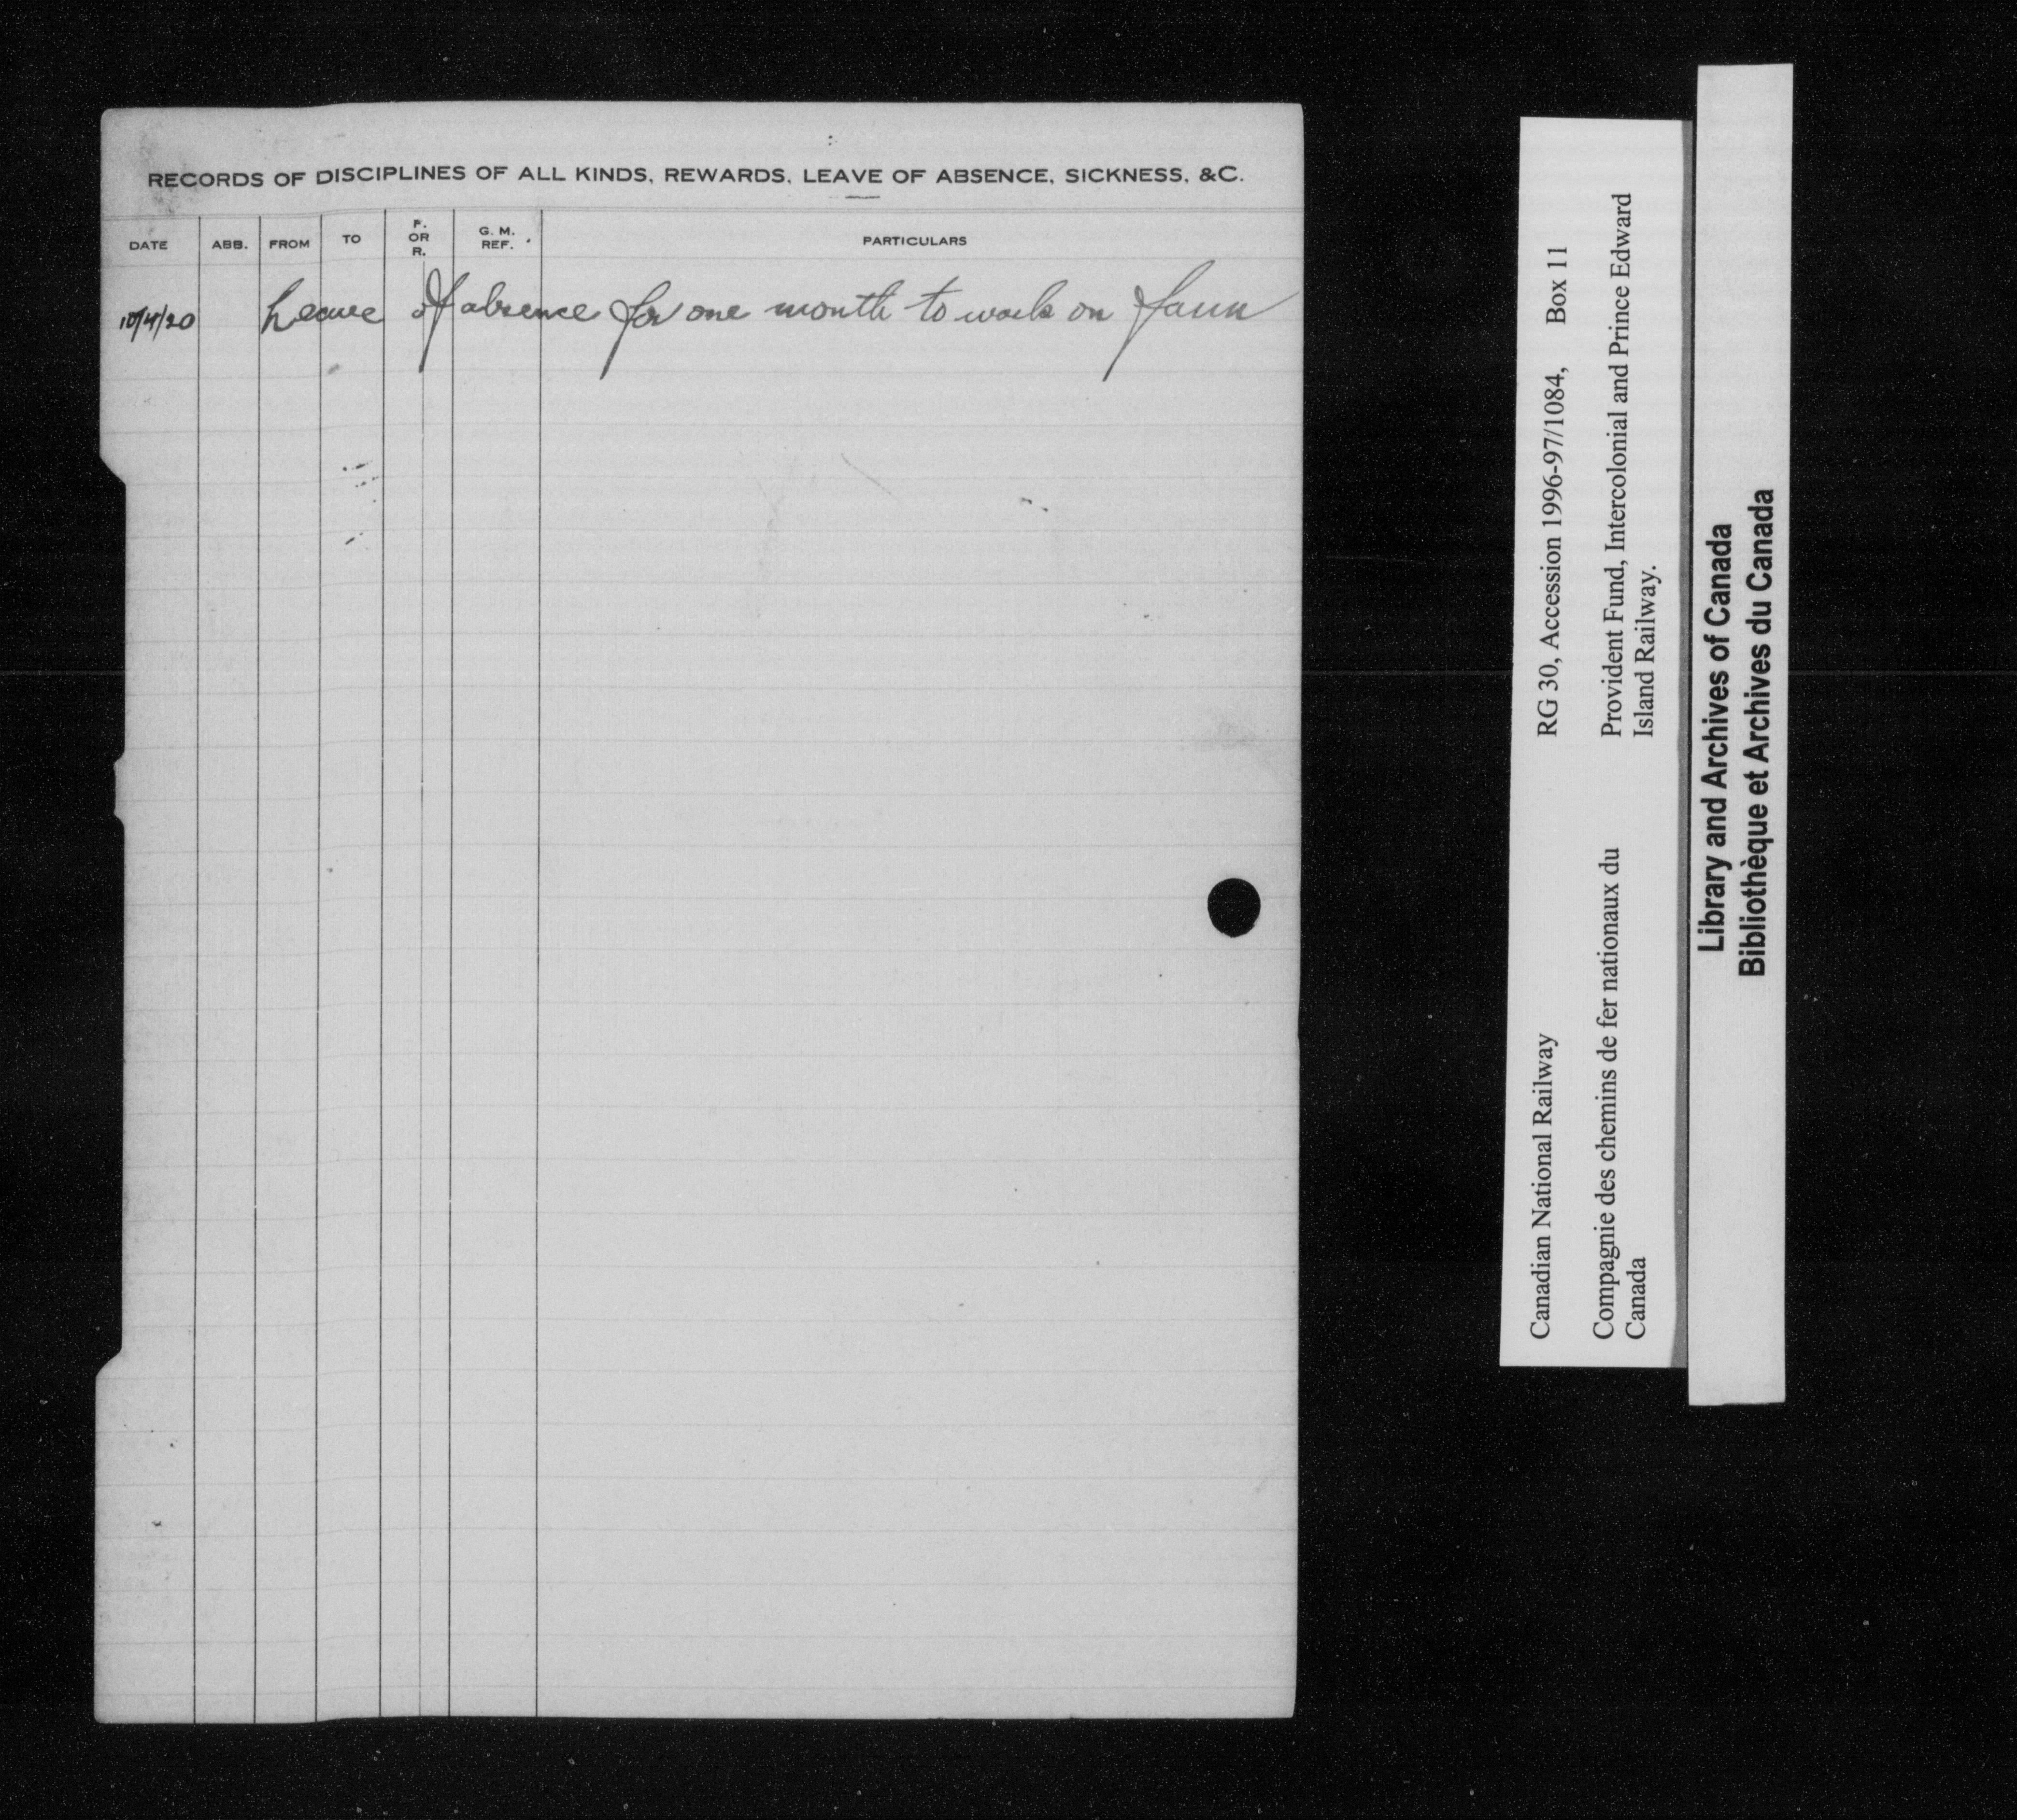 RECORDS OF DISCIPLINES OF ALL KINDS, REWARDS, LEAVE OF ABSENCE, SICKNESS, &C.
DATE ABB. FROM TO F. OR R. G. M. REF. PARTICULARS
Leave of absence for one month to work on farm
Canadian National Railway RG 30, Accession 1996-97/1084, Box 11
Compagnie des chemins de fer nationaux du Provident Fund, Intercolonial and Prince Edward
Canada Island Railway.
Library and Archives of Canada
Bibliothèque et Archives du Canada